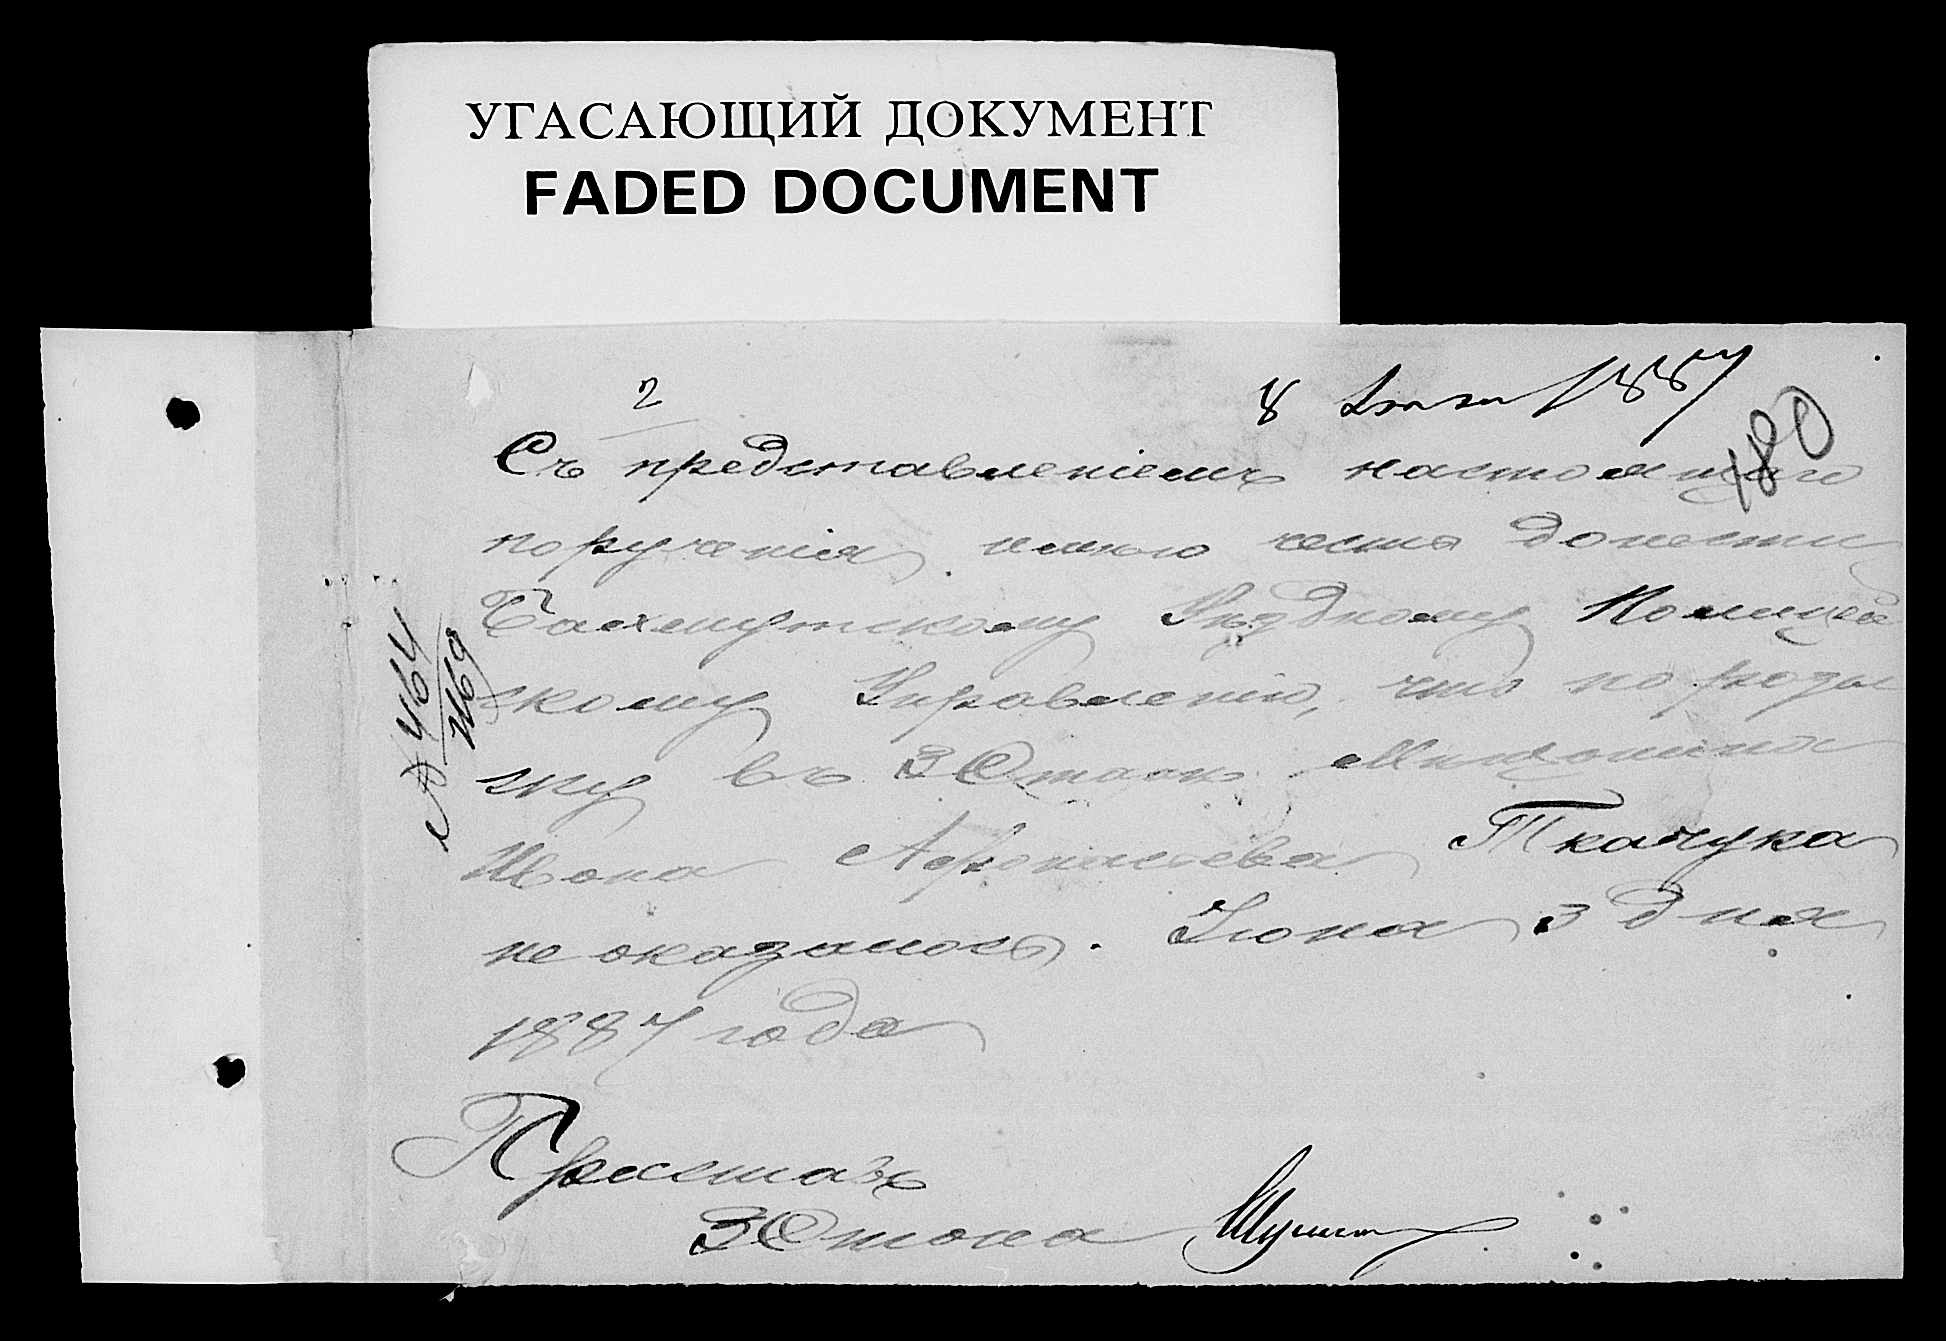 УГАСАЮЩИЙ ДОКУМЕНТ
FADED DOCUMENT
2
8 Іюня 1887
180
Съ представленіемъ настоящаго
порученія, имѣю честь донести
Бахмутскому Уѣздному Полицей
скому Управленію, что по розы
ску въ 3 Станѣ
Ивана Афанасьева Ткачука
не оказалось. Іюня 3 дня
1887 года
Приставъ
3 Стана
№ 464